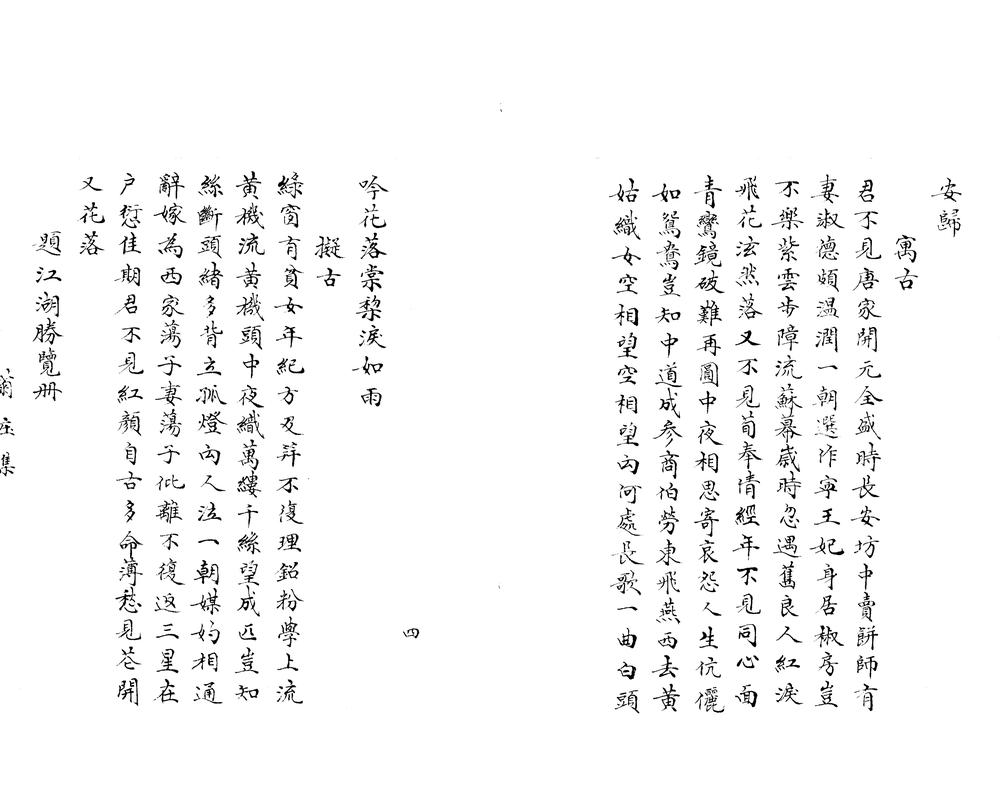 安歸
寓古
君不見唐家開元全盛時長安坊中賣餅師有
妻淑德頗溫潤一朝選作寧王妃身居椒房豈
不樂紫雲步障流蘇幕歲時忽遇舊良人紅淚
飛花泫然落又不見荀奉倩經年不見同心面
青鸞鏡破難再圓中夜相思寄哀怨人生伉儷
如鴛鴦豈知中道成參商伯勞東飛燕西去黃
姑織女空相望空相望向何處長歌一曲白頭
吟花落棠棃淚如雨
擬古
綠窗有貧女年紀方及笄不復理鉛粉學上流
黃機流黃機頭中夜織萬縷千絲望成匹豈知
絲斷頭緒多背立孤燈向人泣一朝媒妁相通
辭嫁為西家蕩子妻蕩子仳離不復返三星在
戶愆佳期君不見紅顏自古多命薄愁見花開
又花落
題江湖勝覽册
四